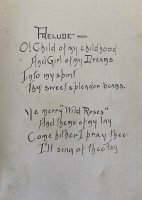 PRELUDE —
O! Child of my childhood
And Girl of my Dreams
Into my spirit
Thy sweet splendor beams.
Ye merry "Wild Roses"
And theme of my lay
Come hither I pray thee
I'll sing of thee lay